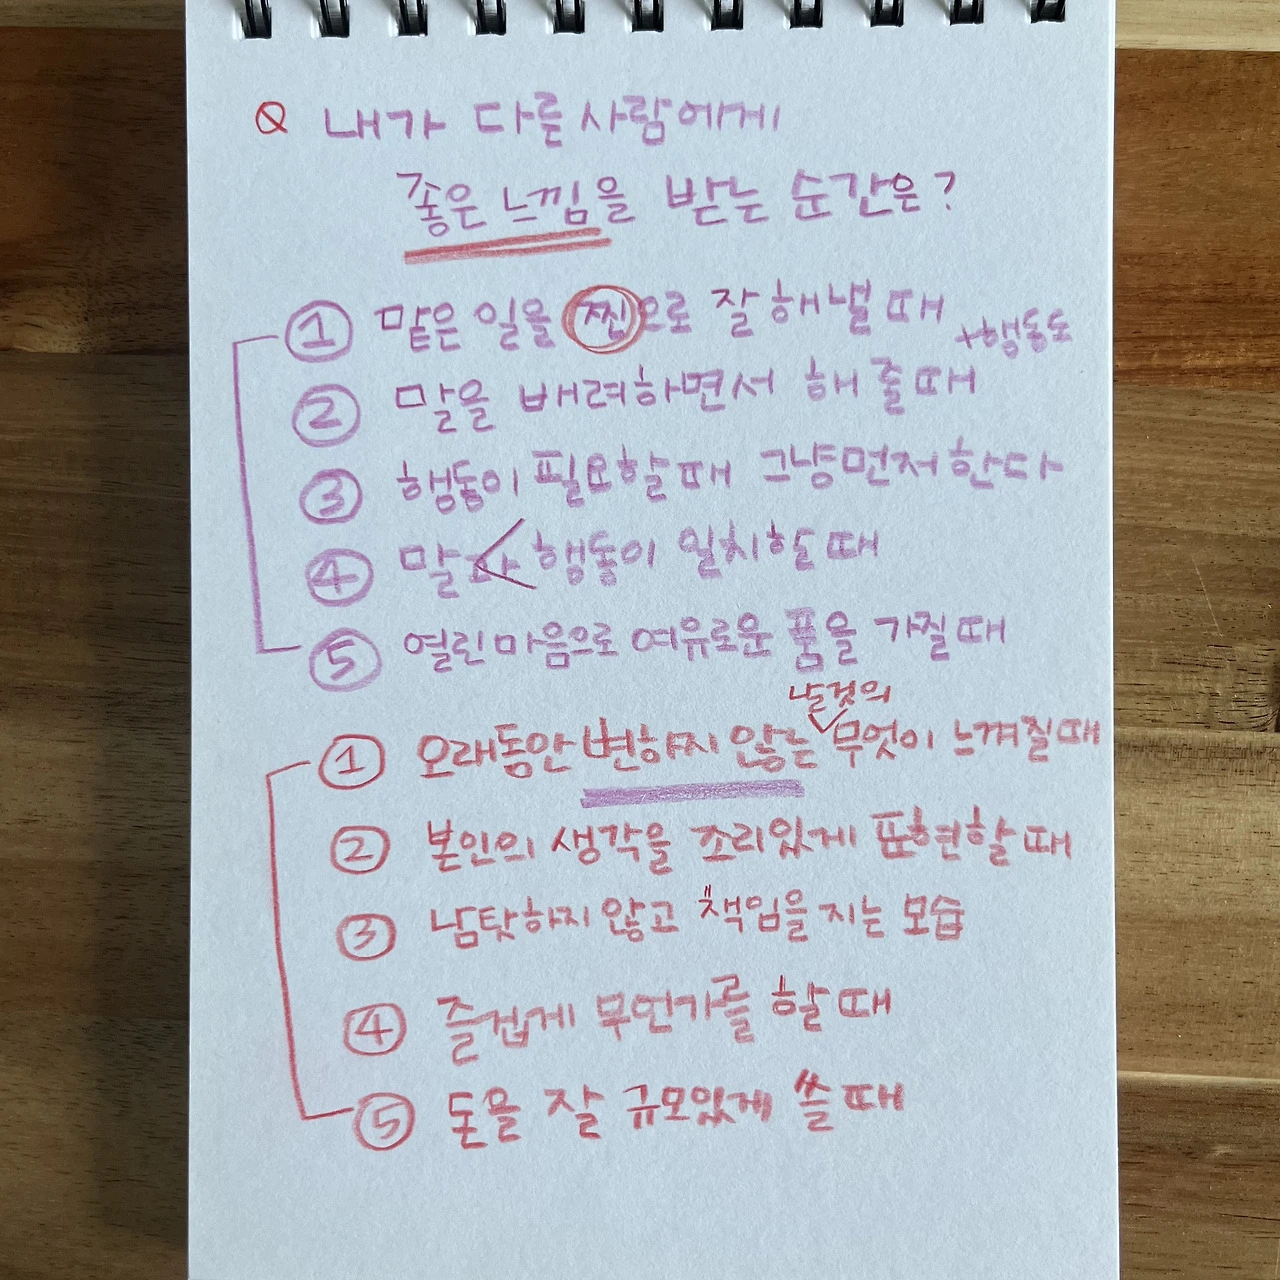 Q 내가 다른 사람에게
좋은 느낌을 받는 순간은?
① 맡은 일을 찐으로 잘 해낼 때
+행동도
② 말을 배려하면서 해 줄 때
③ 행동이 필요할 때 그냥 먼저 한다
④ 말과 < 행동이 일치할 때
⑤ 열린 마음으로 여유로운 품을 가질 때
날것의
① 오래동안 변하지 않는 무엇이 느껴질 때
② 본인의 생각을 조리있게 표현할 때
③ 남탓하지 않고 책임을 지는 모습
④ 즐겁게 무언가를 할 때
⑤ 돈을 잘 규모있게 쓸 때